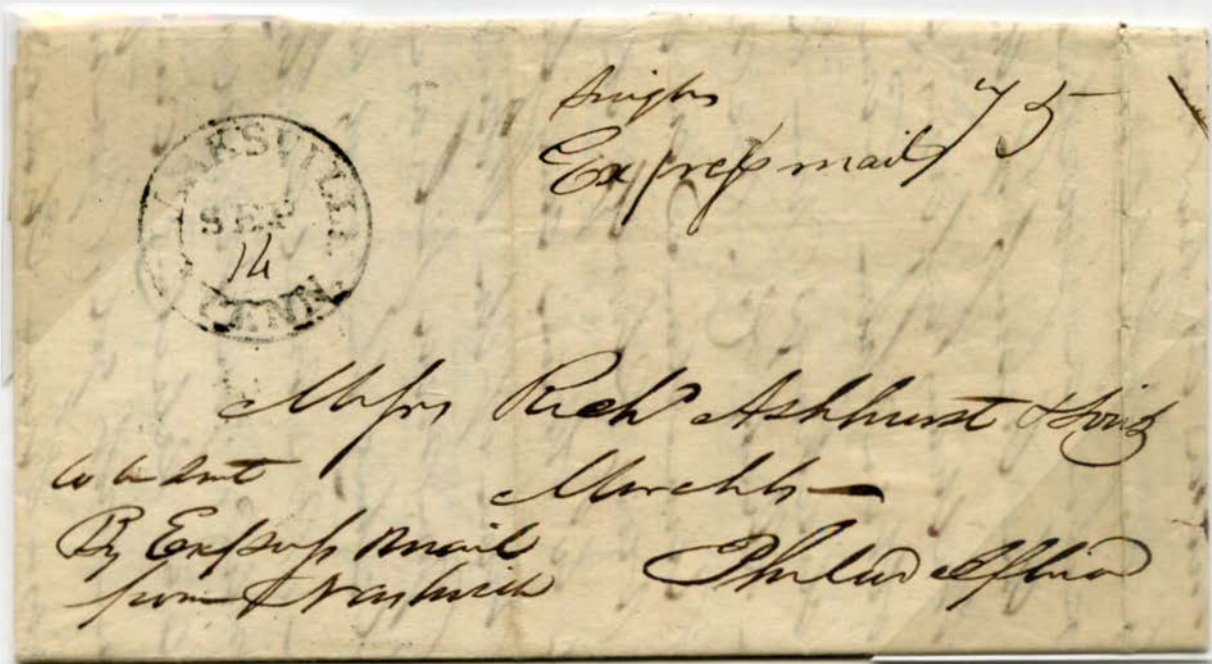 CLARKSVILLE
SEP
14
TENN.
Single 75
Express mail
Messrs Richd Ashhurst & Sons
Merchts
Philadelphia
to be sent
By Express Mail
from Nashville